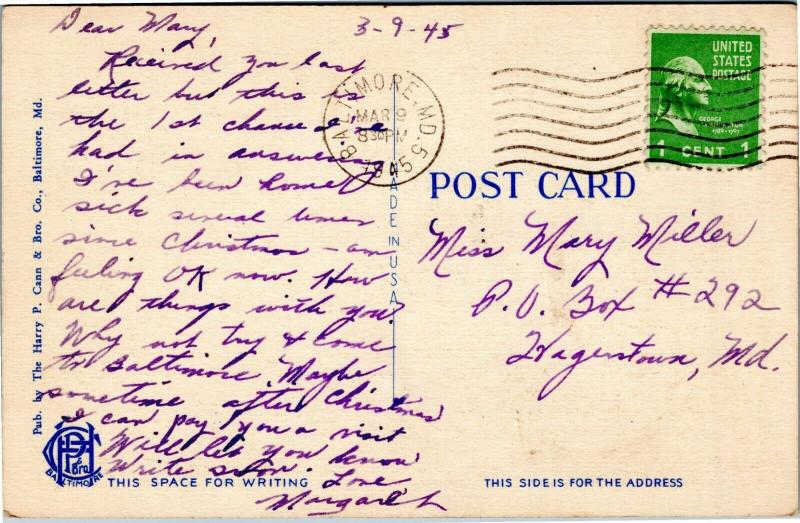 Dear Mary, 3-9-45
Received you last
letter but this is
the 1st chance I've
had in answering
I've been home
sick several times
since Christmas - am
feeling OK now. How
are things with you?
Why not try & come
to Baltimore. Maybe
sometime after Christmas
I can pay you a visit
Will let you know
Write soon. Love
Margaret
BALTIMORE, MD. 55
MAR 9
8 30 PM
1945
UNITED
STATES
POSTAGE
GEORGE
WASHINGTON
1789-1797
1 CENT 1
POST CARD
Miss Mary Miller
P.O. Box #292
Hagerstown, Md.
MADE IN USA
Pub. by The Harry P. Cann & Bro. Co., Baltimore, Md.
& Bro.
BALTIMORE
THIS SPACE FOR WRITING
THIS SIDE IS FOR THE ADDRESS